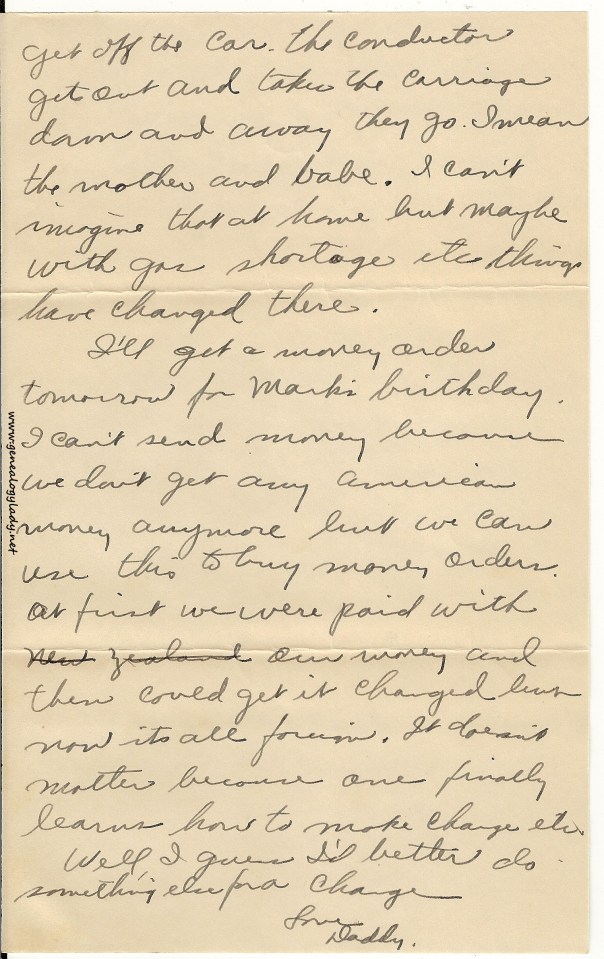 get off the car. the conductor
gets out and takes the carriage
down and away they go. I mean
the mother and babe. I can't
imagine that at home but maybe
with gas shortage etc things
have changed there.
I'll get a money order
tomorrow for Mark's birthday.
I can't send money because
we don't get any american
money anymore but we can
use this to buy money orders.
At first we were paid with
New Zealand our money and
then could get it changed but
now its all foreign. It doesn't
matter because one finally
learns how to make change etc.
Well I guess I'd better do
something else for a change
Love
Daddy.
www.genealogylady.net